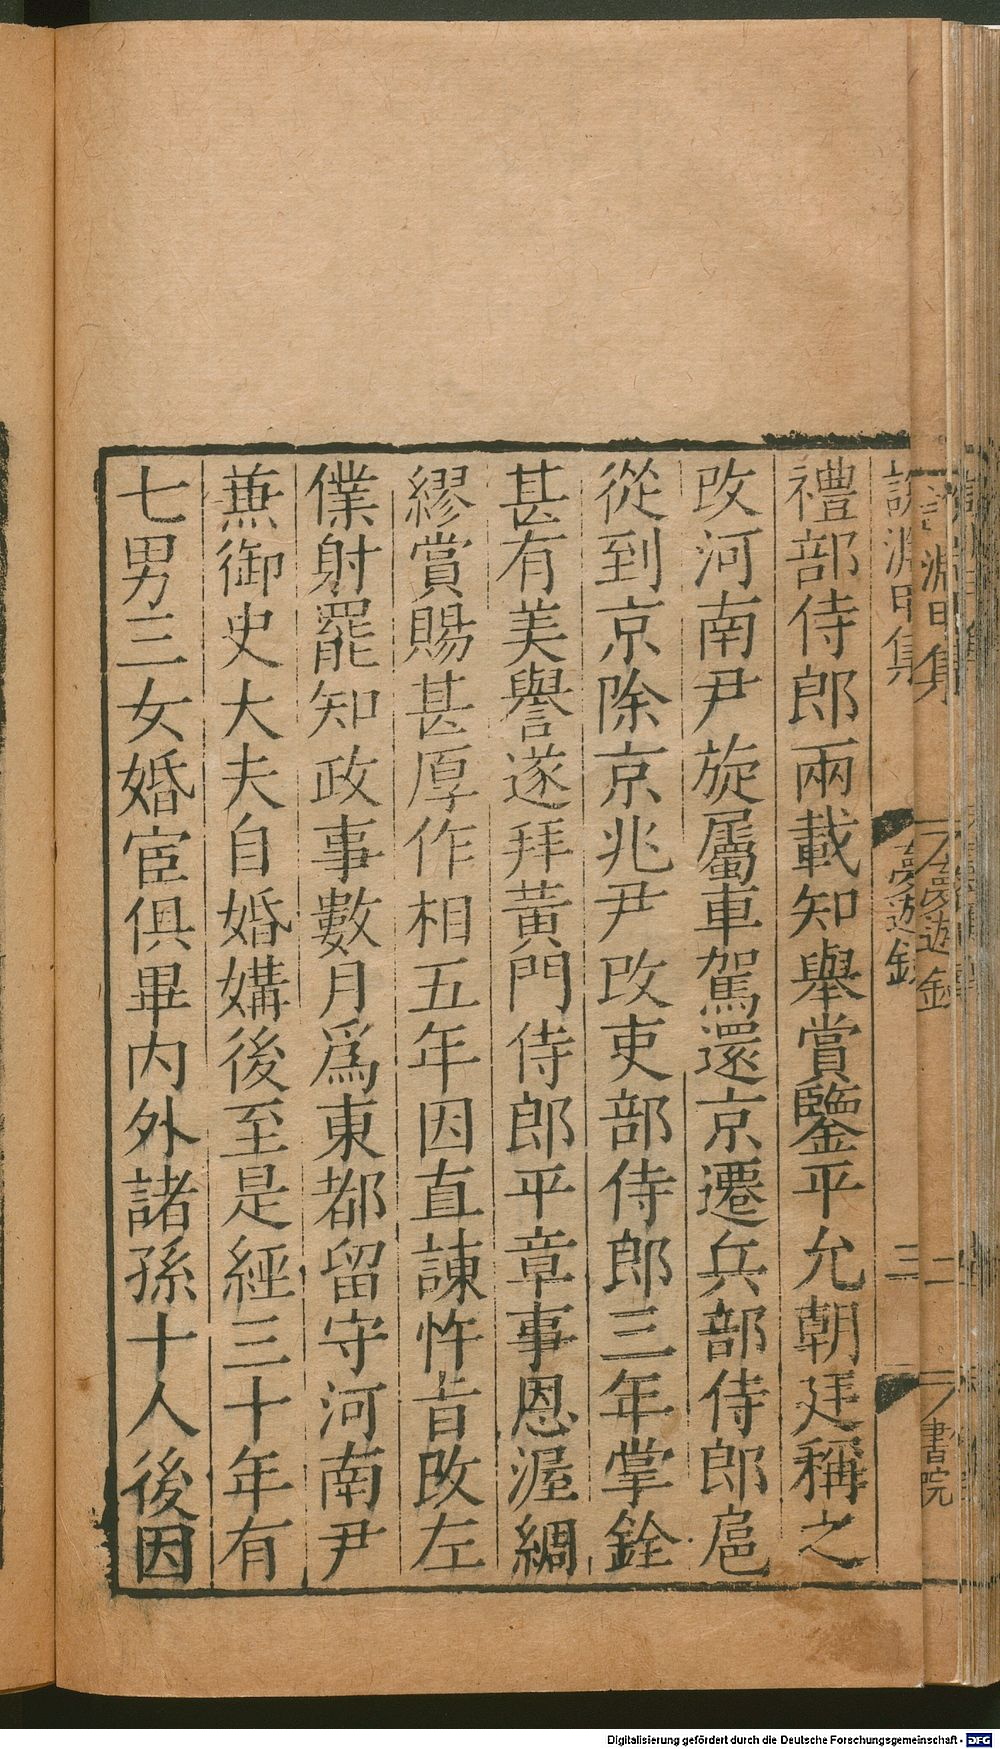 禮部侍郎兩載知舉賞鑒平允朝廷稱之
改河南尹旋屬車駕還京遷兵部侍郎扈
從到京除京兆尹改吏部侍郎三年掌銓
甚有美譽遂拜黃門侍郎平章事恩渥綢
繆賞賜甚厚作相五年因直諫忤旨改左
僕射罷知政事數月爲東都留守河南尹
兼御史大夫自婚媾後至是經三十年有
七男三女婚宦俱畢內外諸孫十人後因
說淵丁集
夢遊錄
三
淵
集
夢遊錄
二
書院
Digitalisierung gefördert durch die Deutsche Forschungsgemeinschaft - DFG